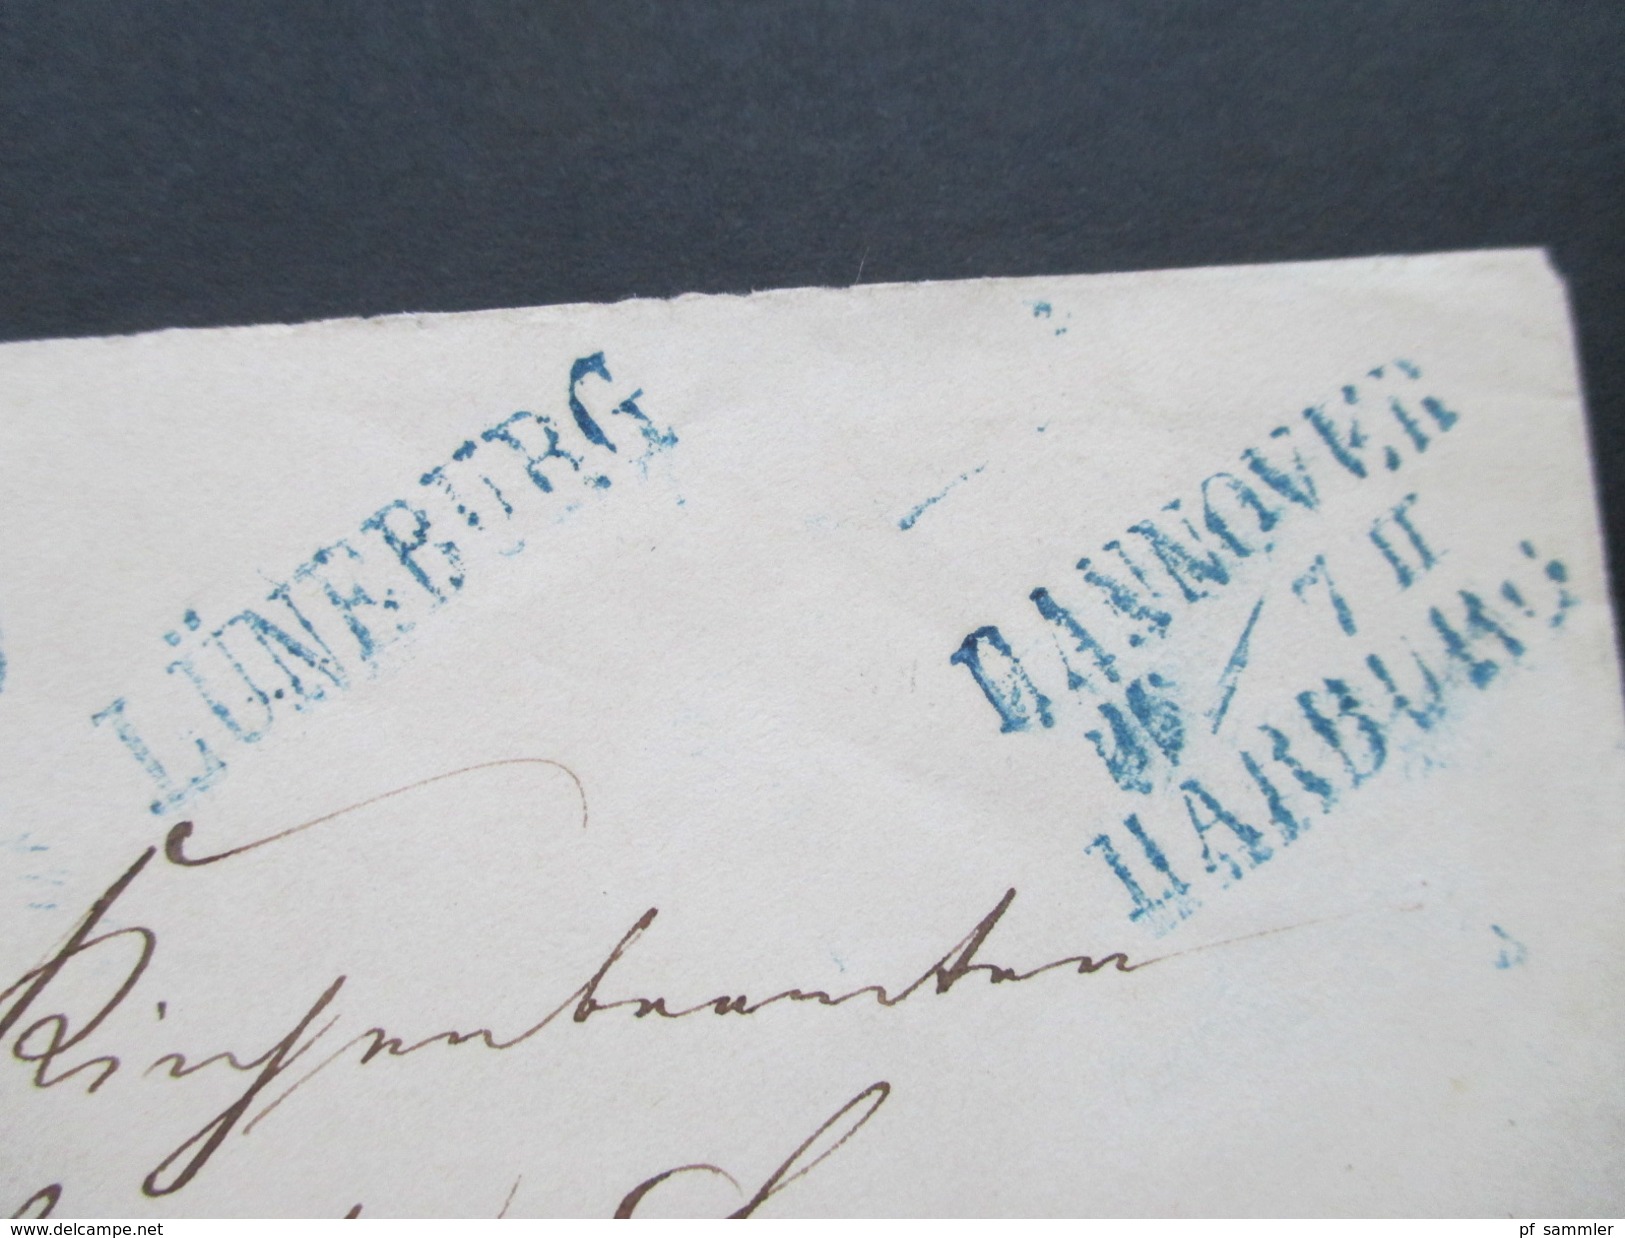 LÜNEBURG
HANNOVER
26/7 II
HARBURG
Kirchenbeamten
www.delcampe.net
pf_sammler